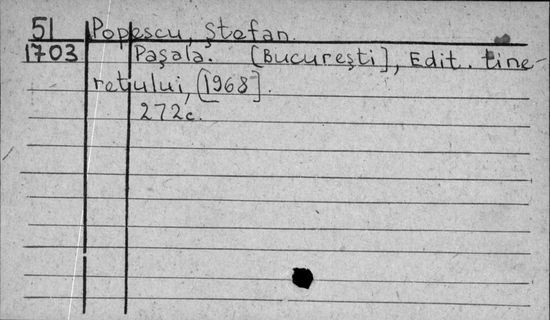 51 Popescu, Ştefan.
1703 Paşala. [Bucureşti], Edit. tine-
retului, [1968].
272c.